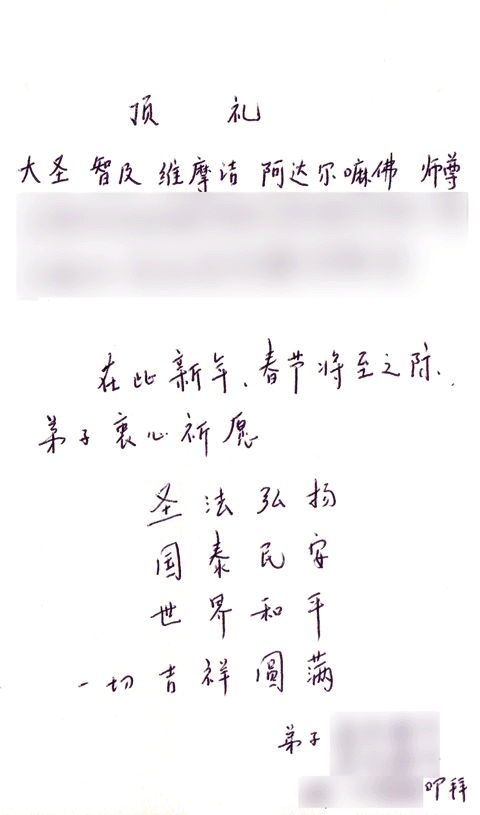 顶 礼
大圣 智及 维摩诘 阿达尔嘛佛 师尊
在此新年、春节将至之际、
弟子衷心祈愿
圣法弘扬
国泰民安
世界和平
一切吉祥圆满
弟子
叩拜